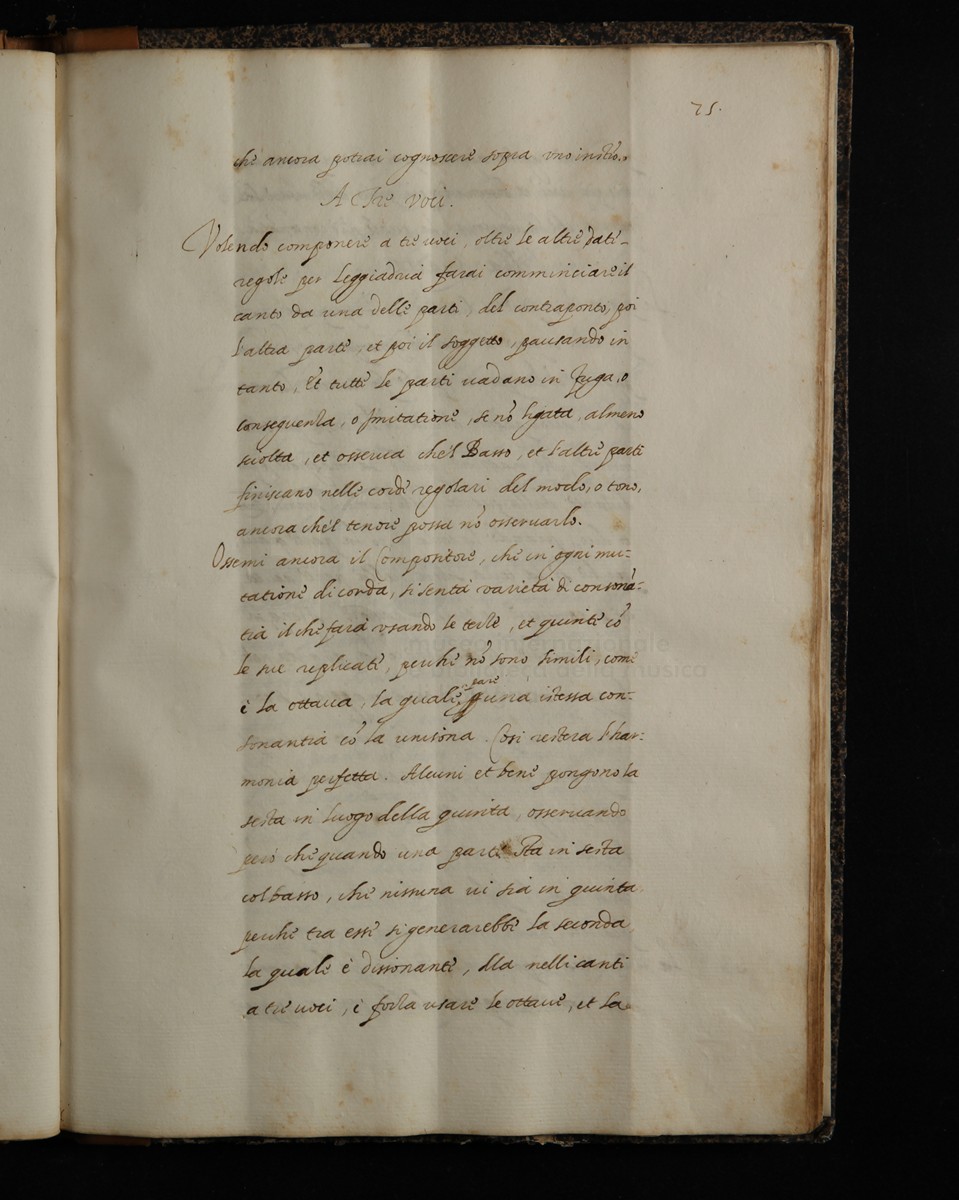 75.
che ancora potrai cognoscere sopra uno
A Tre voci.
Volendo componere a tre uoci, oltre le altre dati-
regole per leggiadria farai comminciare il
canto da una delle parti, del contraponto, poi
l'altra parte, et poi il soggetto, pausando in
tanto, Et tutte le parti uadano in fuga, o
conseguenza, o Imitatione, se nō ligata, almeno
sciolta, et osserua che'l Basso, et l'altre parti
finiscano nelle corde regolari del modo, o tono,
ancora che'l tenore possa nō osservarlo.
Osserui ancora il Compositore, che in ogni mu-
tatione di corda, si senta varietà di consonā-
tia il che farà usando le terze, et quinte cō
le sue replicate, perche nō sono simili, come
è la ottaua, la quale pare una istessa con-
sonantia cō la unisona. Cosi restera l'har-
monia perfetta. Alcuni et bene pongono la
sesta in luogo della quinta, osseruando
però che quando una parte sta in sesta
col basso, che nissuna ui sia in quinta
perche tra esse si generarebbe la seconda
la quale è dissonante, Ma nelli canti
a tre uoci, è forza usare le ottaue, et la